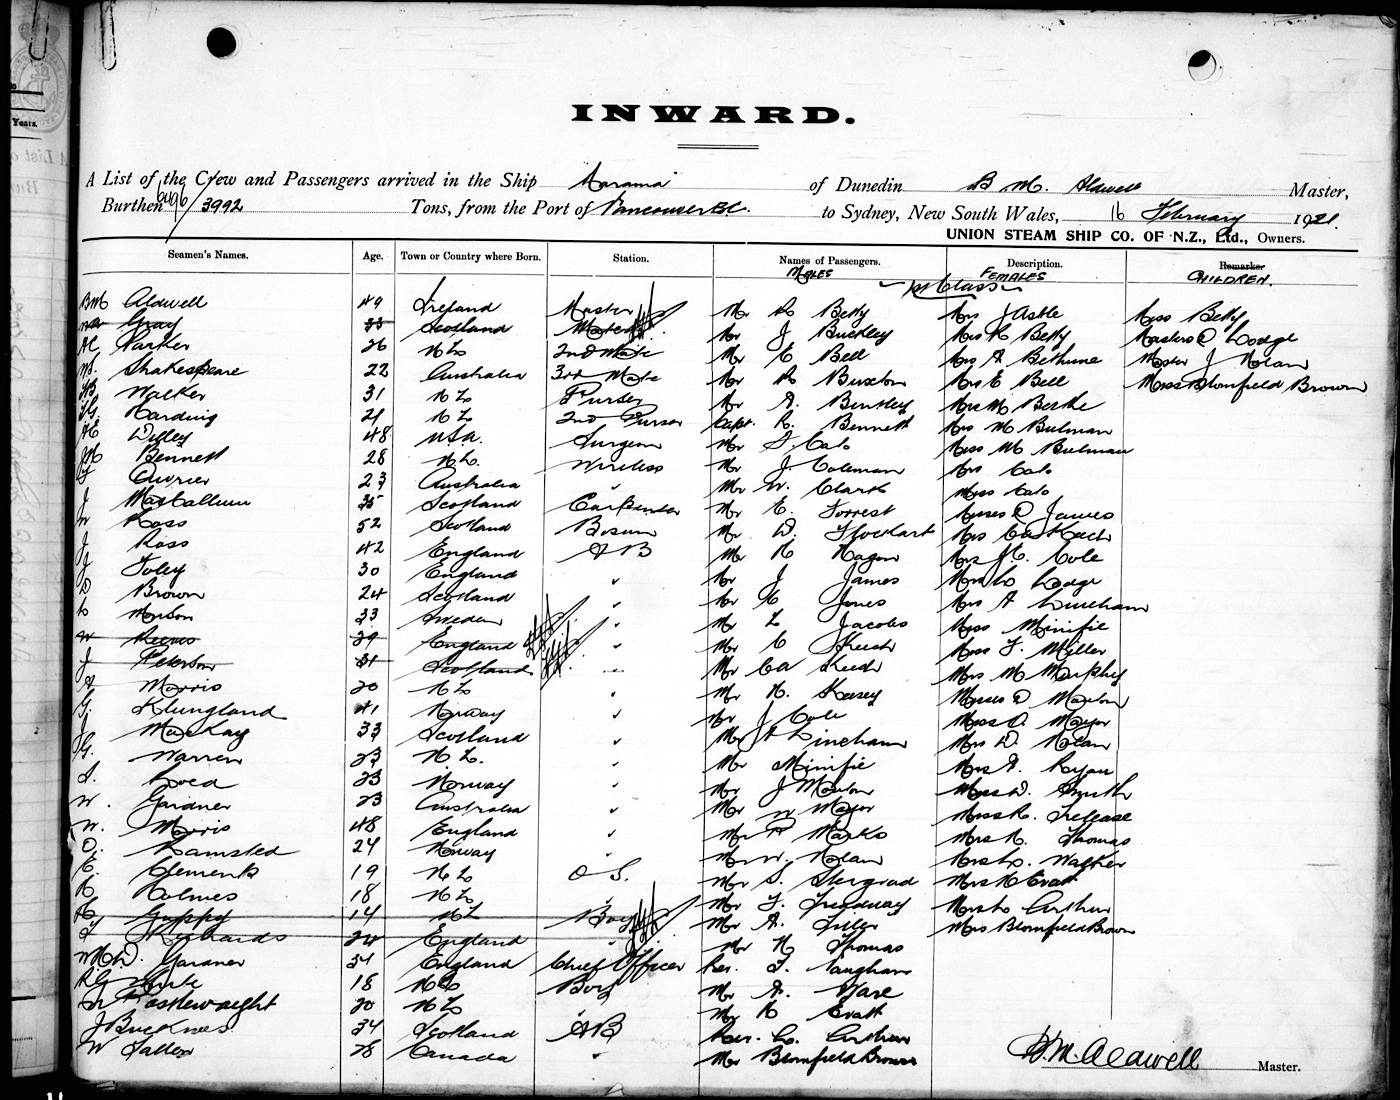 Years.
INWARD.
A List of the Crew and Passengers arrived in the Ship Marama of Dunedin B M. Aldwell Master,
Burthen 6496/3992 Tons, from the Port of Vancouver BC. to Sydney, New South Wales, 16 February 1921.
UNION STEAM SHIP CO. OF N.Z., Ltd., Owners.
Seamen's Names. Age. Town or Country where Born. Station. Names of Passengers. Description. Remarks
MALES FEMALES CHILDREN.
1st Class
BM Aldwell 49 Ireland Master Mr R Betty Mrs J Astle Miss Betty
Gray 33 Scotland Mate Mr J Buckley Mrs R Betty Masters Lodge
Parker 26 NZ 2nd Mate Mr E Bell Mrs A Bethune Master J Nolan
W. Shakespeare 22 Australia 3rd Mate Mr R Buxton Mrs E Bell Miss Blomfield Brown
Walker 31 NZ Purser Mr A. Bentley Mrs M Berthe
Harding 21 NZ 2nd Purser Capt. R. Bennett Mrs M Bulman
Dilley 48 USA. Surgeon Mr Calo Miss M Bulman
JM Bennett 28 NZ. Wireless Mr J Coleman Mrs Calo
Currier 23 Australia " Mr W. Clark Miss Calo
J MacCallum 35 Scotland Carpenter Mr E. Forrest Misses James
W Ross 52 Scotland Bosun Mr D. Flockhart Mrs Ca Keech
J Ross 42 England AB Mr R Hagon Mrs J. Cole
J Foley 30 England " Mr J James Mrs L Lodge
D Brown 24 Scotland " Mr E Jones Mrs A Lineham
L 33 Sweden " Mr L Jacobs Miss Minifie
W Reeves 29 England " Mr C Keech Miss F. Miller
J Peterson 31 Scotland " Mr Ca Keech Mrs M Murphy
Morris 20 NZ " Mr H. Kersey Misses
G. Klungland 41 Norway " Mr J Cole Miss A. Mayor
J MacKay 33 Scotland " Mr A Lineham Mrs D. Nolan
G. Warren 23 N.Z. Mr Minifie Mrs A. Ryan
S. 23 Norway " Mr J Miss D. Smith
W. Gardner 23 Australia " Mr W Mayor Miss R. Trelease
W. Morris 48 England " Mr P Marks Mrs R. Thomas
O. Ramsted 24 Norway " Mr W. Nolan Mrs L. Walker
E. Clements 19 NZ O S. Mr S. Mrs R Evatt
R Holmes 18 NZ " Mr F. Treadway Mrs L Arthur
Guppy 14 NZ Boy Mr A. Tiller Mrs Blomfield Brown
Richards 24 England " Mr H Thomas
W McD. Gardner 34 England Chief Officer Rev. F. Vaughan
18 NZ Boy Mr A. Ware
Postlewaight 20 NZ " Mr R Evatt
J Buckness. 34 Scotland AB Rev. L. Arthur
W Fallen 28 Canada " Mr Blomfield Brown
B.M. Aldwell Master.